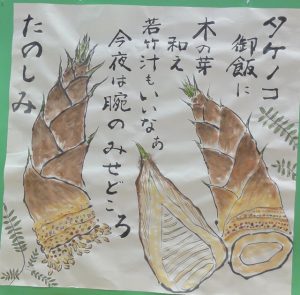 タケノコ
御飯に
木の芽
和え
若竹汁もいいなぁ
今夜は腕の みせどころ
たのしみ